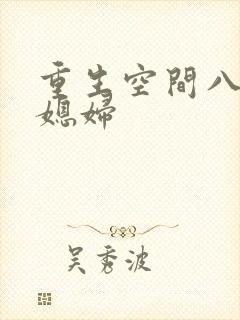 重生空間八
媳婦
吴秀波